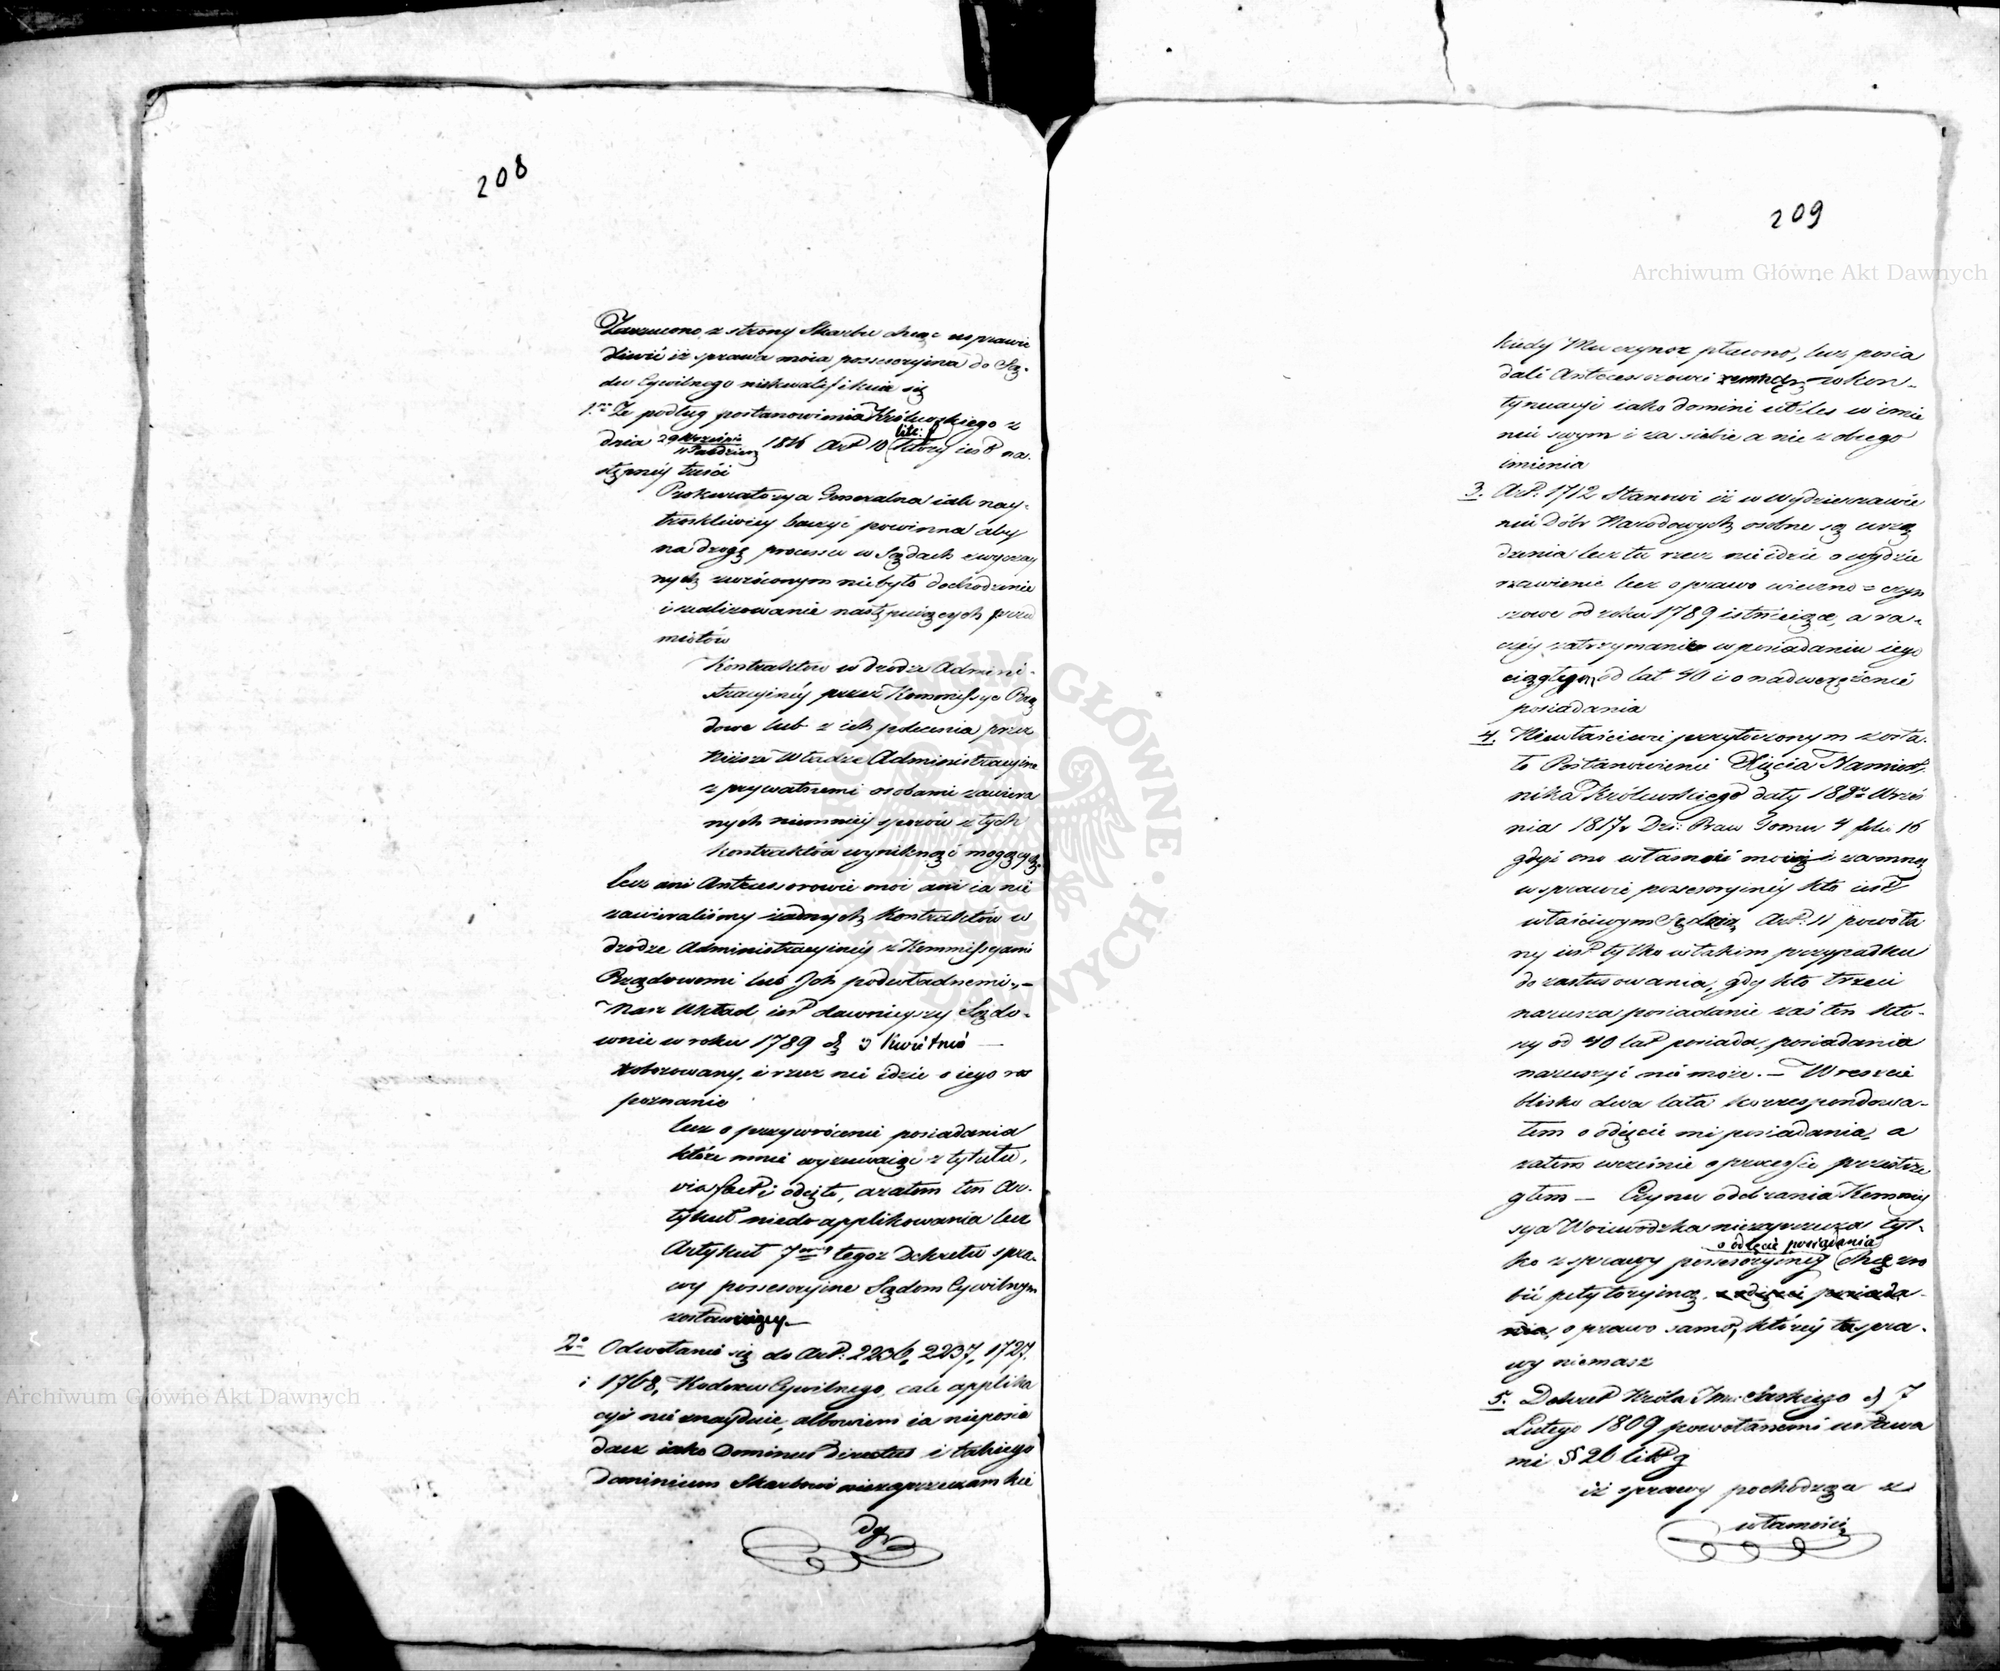 208
Zarzucono z strony Skarbu chcąc usprawie
dliwić iż sprawa moia possessoryina do Są-
du Cywilnego niekwalifikuie się
1.mo Że podług postanowienia Królewskiego z
dnia 29 Września 1816 Art 10 który iest na-
11 Paździer
litt: f
stępnéy treści
Prokuratorya Generalna iak nay-
troskliwiey baczyć powinna aby
na drogę processu w Sądach zwyczay
nych zwróconym niebyło dochodzenie
i realizowanie następuiących przed
miotów
Kontraktów w drodze Admini-
stracyinéy przez Kommissye Rzą
dowe lub z ich polecenia przez
Niższe Władze Administracyine
z prywatnemi osobami zawiera
nych niemniéy sporów z tych
kontraktów wyniknąć mogących
lecz ani Antecessorowie moi ani ia nie
zawieraliśmy żadnych kontraktów w
drodze Administracyinéy z Kommissyami
Rządowemi lub Ich podwładnemi.—
Nasz Układ iest dawnieyszy Sądo-
wnie w roku 1789 d 3 Kwietnia
roborowany, i rzecz nie idzie o iego roz
poznanie
lecz o przywrócenie posiadania
które mnie wyzuwaiąc z tytułu,
via facti odięto, azatem ten Ar-
tykuł niedo applikowania lecz
Artykuł 7my tegoż Dekretu spra-
wy possessoryine Sądom Cywilnym
zostawuiący—
2o Odwołanie się do Art: 2236, 2237, 1727.
i 1768, Kodexu Cywilnego, cale applika
cyi nie znayduie, albowiem ia nieposia
dacz iako Dominus Directus i takiego
Dominium Skarbowi niezaprzeczam kie
dy
209
Archiwum Główne Akt Dawnych
kiedy mu czynsz płacono, lecz posia
dali Antecessorowie w kon-
tynuacyi iako domini utiles w imie
niu swym i za siebie a nie z obcego
imienia
3. Art. 1712 Stanowi iż w wydzierzawie
niu Dóbr Narodowych osobne są urzą
dzenia lecz tu rzecz nie idzie o wydzie
rzawienie lecz o prawo wieczno=czyn
szowe od roku 1789 istnieiące, a ra-
czéy zatrzymanie w posiadaniu iego
ciągłym, od lat 40 i o nadwerężenie
posiadania
4. Niewłaściwie przytoczonym zosta-
ło Postanowienie Xięcia Namiest-
nika Królewskiego daty Wrześ
nia 1817 r Dzi: Praw Tomu 4 folio 16
gdyż ono własność moię i zamną
w sprawie possessoryinéy kto iest
właściwym Sędzią Art: 11 powoła
ny iest tylko w takim przypadku
do zastosowania, gdy kto trzeci
narusza posiadanie zaś ten któ-
ry od 40 lat posiada, posiadania
naruszyć nie może.— Wreszcie
blisko dwa lata korrespondowa-
łem o odięcie mi posiadania, a
zatem wcześnie o processie przestrze
głem — Czynu odebrania Kommis
sya Woiewódzka niezaprzecza tyl-
o odięcie posiadania
ko z sprawy possessoryinéy chcą zro
bić petytoryiną, o odięcie posiada-
nia, o prawo samo, któréy tu spra-
wy niemasz
5. Dekret Króla Jmci Saskiego d 7
Lutego 1809 powołanemi ustawa
mi § 26 litt g
iż sprawy pochodzące z
własności
Archiwum Główne Akt Dawnych
ARCHIWUM GŁÓWNE · AKT DAWNYCH ·